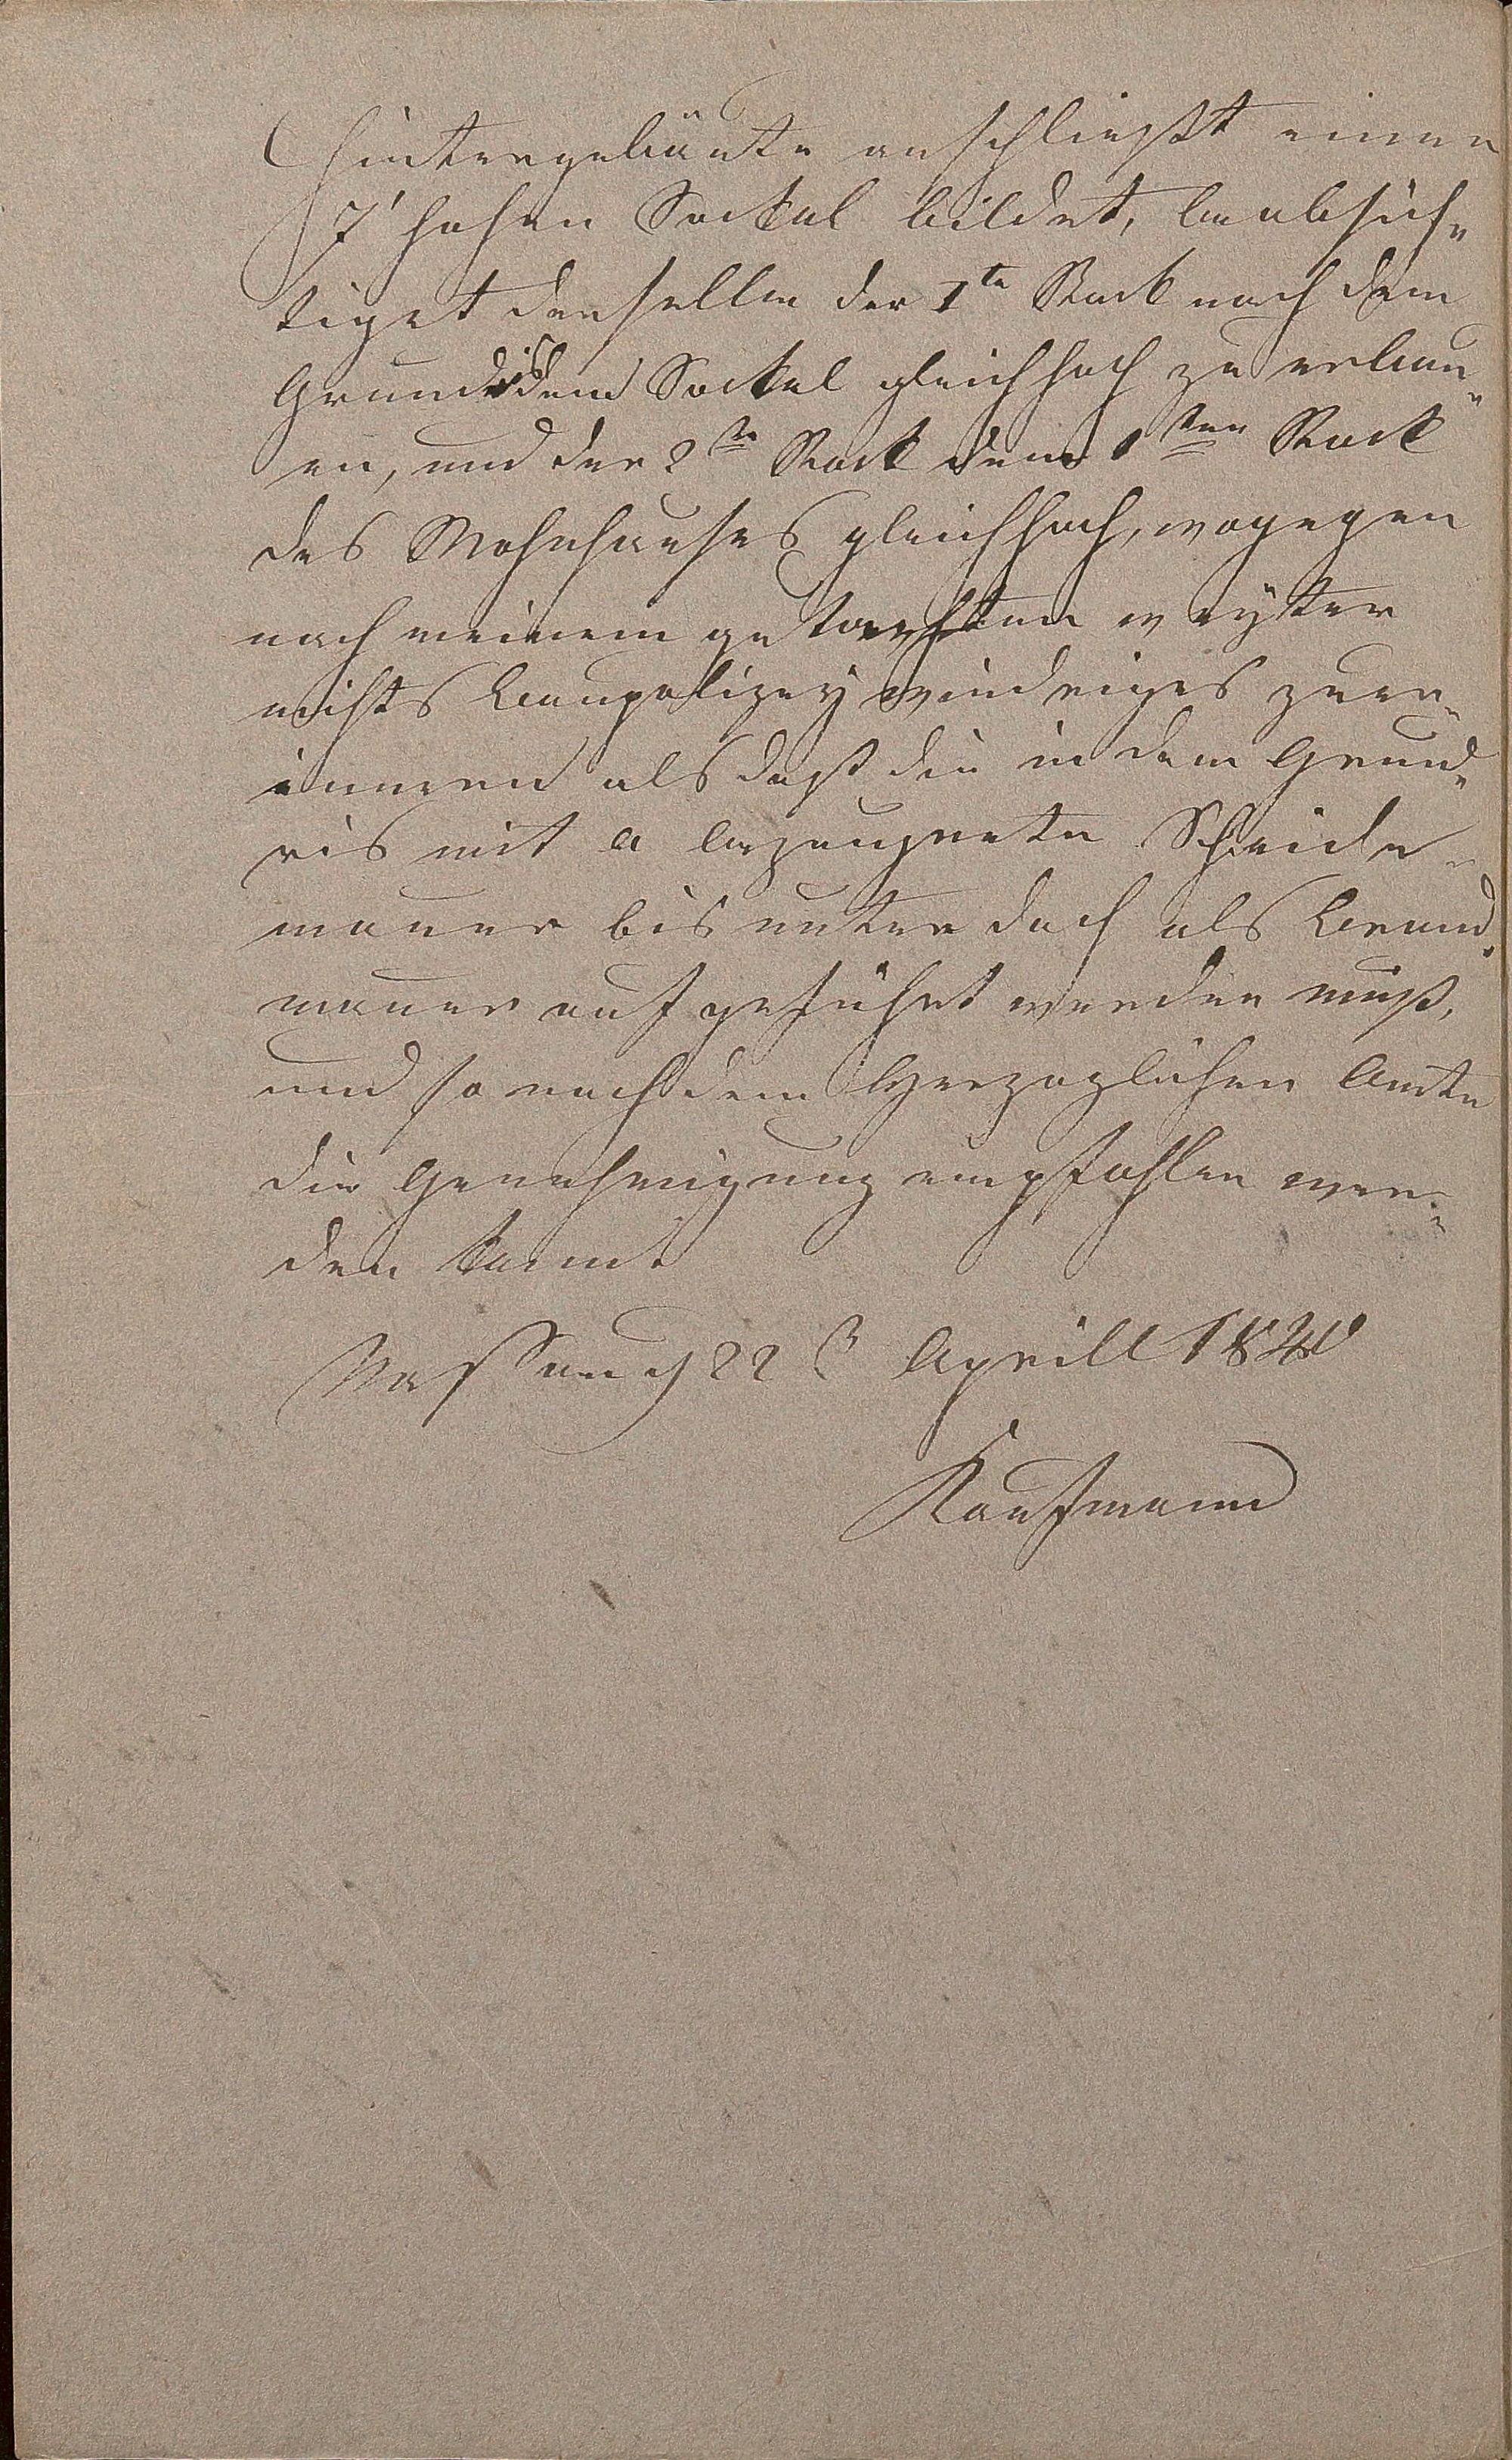 Hintergebäute anschließt einen
7' hohen Sockel bildet, beabsich„
tiget derselbe der 1te Stock nach dem
Grundris dem Sockel gleich hoch zu erbau„
en, und der 2te Stock dem 1ten Stock
des Wohnhauses gleichhoch, wogegen
nach meinem weyter
nichts baupolizey wiedriges zu er„
innern als daß die in dem Grund„
ris mit a bezeugnete Scheide„
mauer bis unter dach als Brand„
mauer aufgeführt werden muß,
und so nach dem Herzoglichen Amte
die Genehmigung empfohlen wer„
den kann.
Nassau d 22 Aprill
Kaufmann